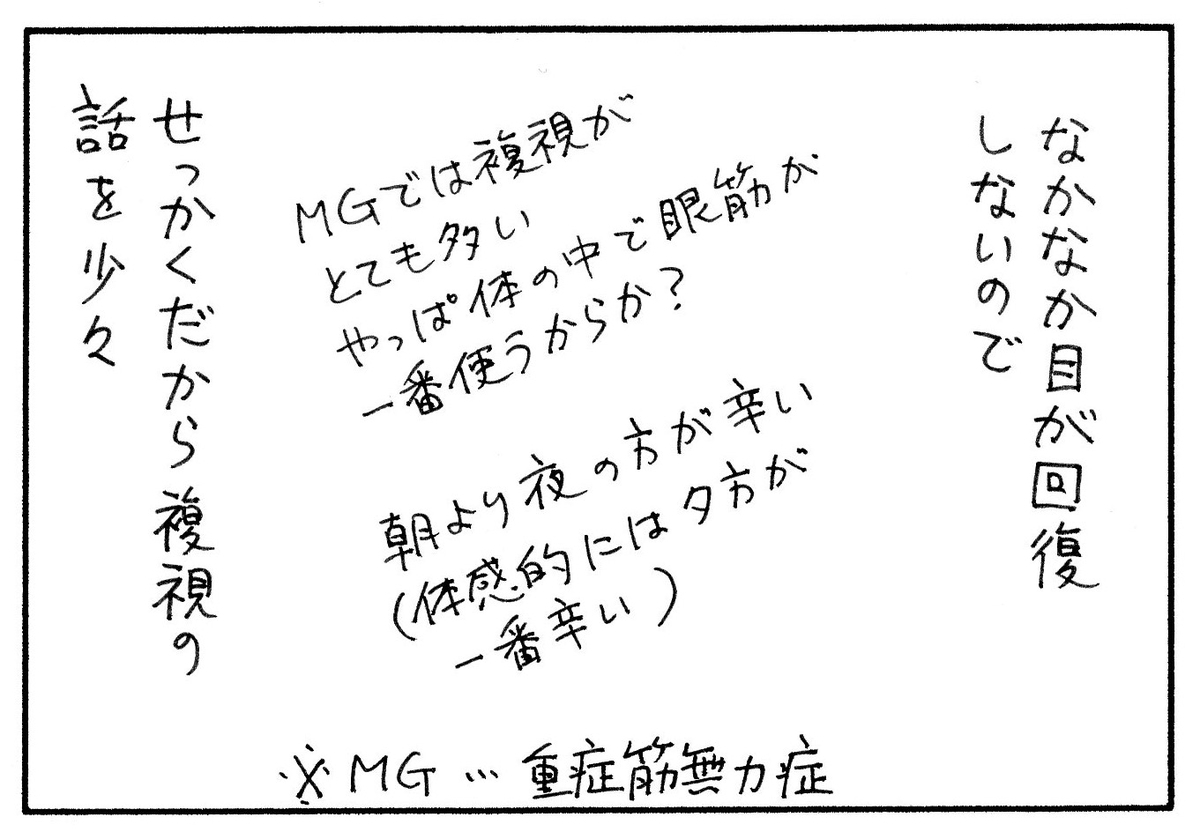 なかなか目が回復
しないので
MGでは複視が
とても多い
やっぱ体の中で眼筋が
一番使うからか？
朝より夜の方が辛い
(体感的には夕方が
一番辛い)
せっかくだから複視の
話を少々
※MG…重症筋無力症